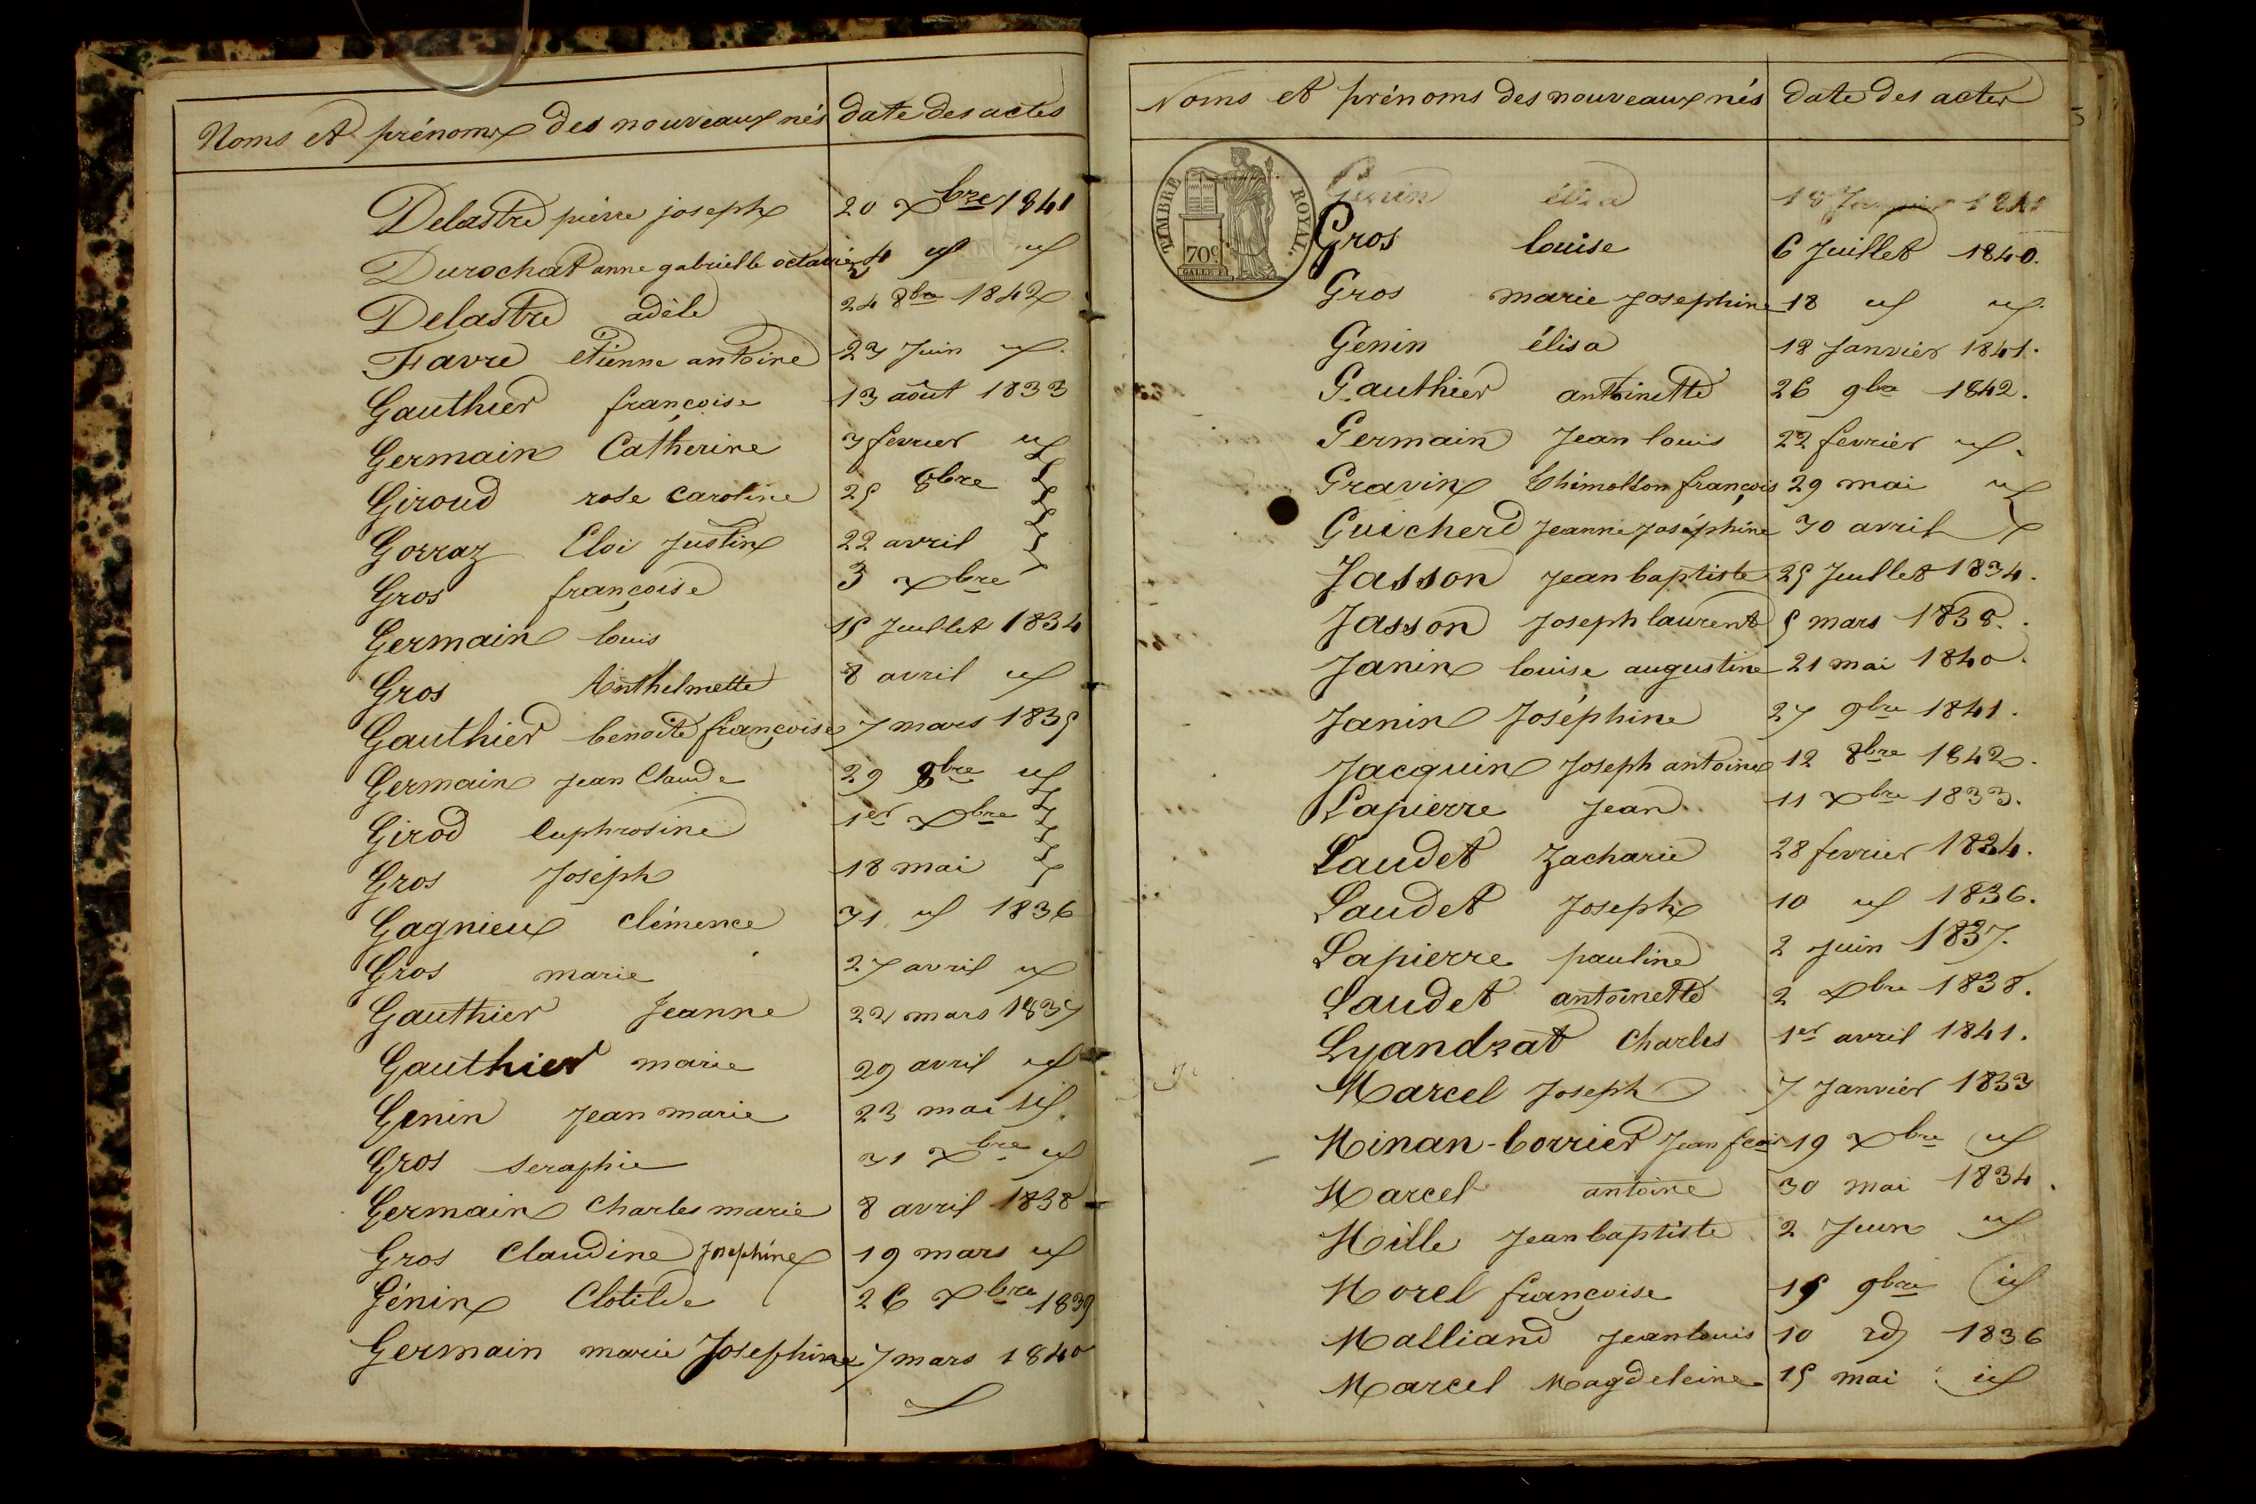 Noms et prénoms des nouveaux nés date des actes
Delastre pierre joseph 20 Xbre 1841
Durochat anne gabrielle octavie 4
Delastre adèle 24 8bre 1842
Favre etienne antoine 23 Juin
Gauthier françoise 13 août 1833
Germain Catherine 3 fevrier
Giroud rose Caroline 25 8bre
Gorraz Eloi Justin 22 avril
Gros françoise 3 Xbre
Germain louis 15 Juillet 1834
Gros Anthelmette 8 avril
Gauthier benoite françoise 7 mars 1835
Germain Jean Claude 29 bre
Girod Euphrosine 1er Xbre
Gros Joseph 18 mai
Gagnieux Clémence 31 1836
Gros marie 27 avril
Gauthier Jeanne 22 mars 1837
Gauthier marie 29 avril
Genin Jean marie 23 mai
Gros Seraphie 31 Xbre
Germain Charles marie 8 avril 1838
Gros Claudine Josephine 19 mars
Génin Clotilde 26 Xbre 1839
Germain marie Josephine 7 mars 1840
Noms et prénoms des nouveaux nés date des actes
TIMBRE ROYAL.
70c.
Genin élisa 18 Janvier
Gros louise 6 Juillet 1840.
Gros marie Josephine 18
Genin élisa 18 Janvier 1841.
Gauthier antoinette 26 9bre 1842.
Germain Jean louis 22 fevrier
Gravin françois 29 mai
Guicherd Jeanne Joséphine 30 avril
Jasson Jean baptiste 25 Juillet 1834.
Jasson Joseph laurent 5 mars 1838.
Janin louise augustine 21 mai 1840.
Janin Joséphine 27 9bre 1841.
Jacquin Joseph antoine 12 8bre 1842.
Lapierre Jean 11 Xbre 1833.
Laudet Zacharie 28 fevrier 1834.
Laudet Joseph 10 1836.
Lapierre pauline 2 Juin 1837.
Laudet antoinette 2 Xbre 1838.
Lyandrat Charles 1er avril 1841.
Marcel Joseph 7 Janvier 1833
Minan-borrier Jean 19 Xbre
Marcel antoine 30 mai 1834.
Mille Jean baptiste 2 Juin
Morel françoise 15 9bre
Malliand Jean louis 10 1836
Marcel Magdeleine 15 mai